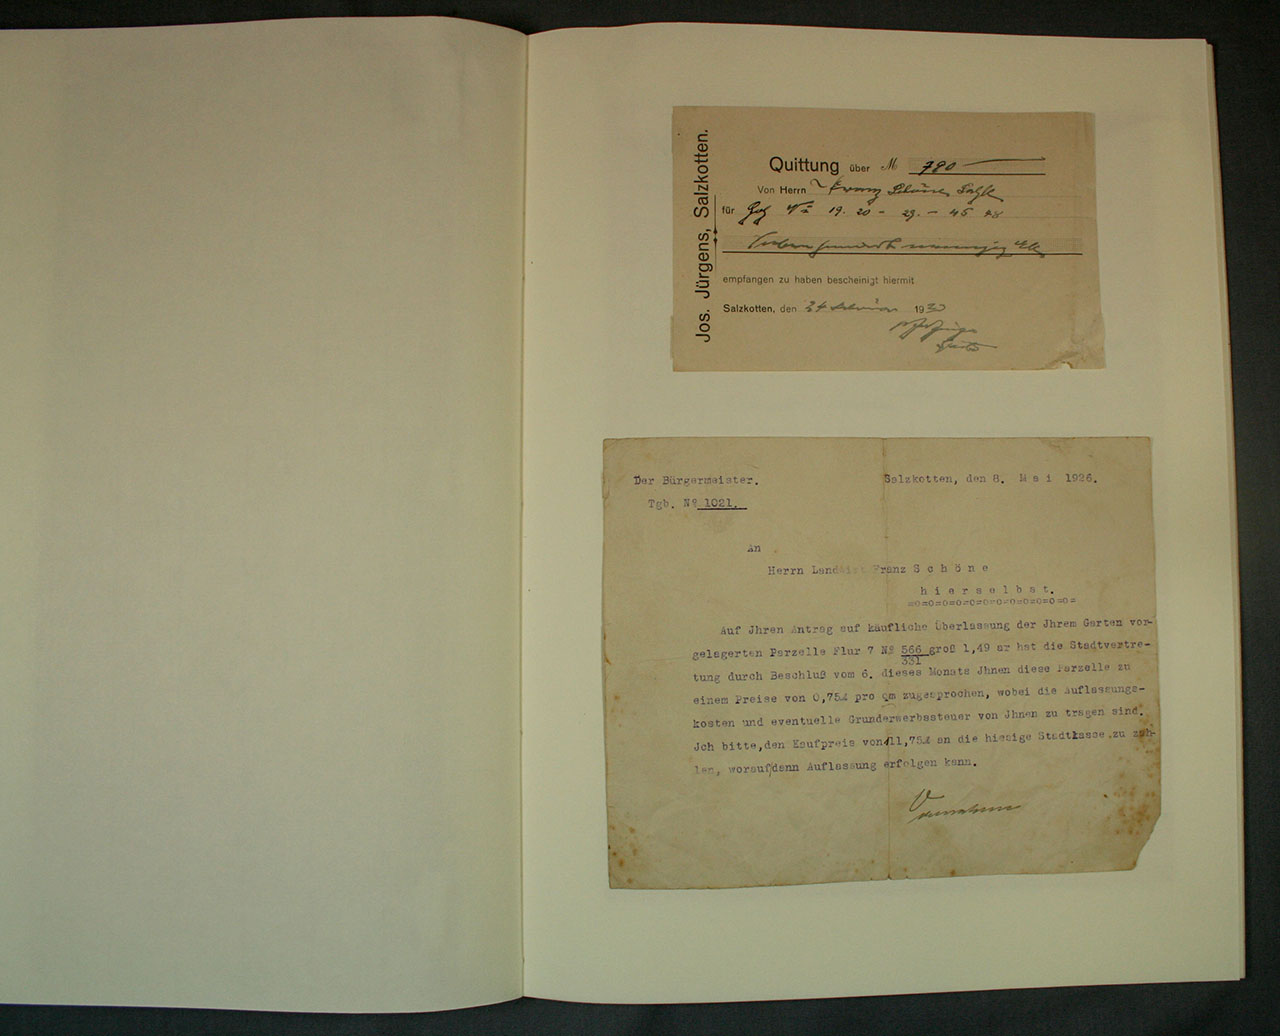 Jos. Jürgens, Salzkotten.
Quittung über M 790
Von Herrn Franz Schöne Salzk
für No 19. 20 - 29. - 45 48
Siebenhundert neunzig Mk
empfangen zu haben bescheinigt hiermit
Salzkotten, den 24 Februar 1930
Der Bürgermeister.
Salzkotten, den 8. M a i 1926.
Tgb. No 1021.
An
Herrn Landwirt Franz S c h ö n e
h i e r s e l b s t.
=o=o=o=o=o=o=o=o=o=o=o=o=
Auf Jhren Antrag auf käufliche Überlassung der Jhrem Garten vor-
gelagerten Parzelle Flur 7 No 566/331 groß 1,49 ar hat die Stadtvertre-
tung durch Beschluß vom 6. dieses Monats Jhnen diese Parzelle zu
einem Preise von 0,75M pro qm zugesprochen, wobei die Auflassungs-
kosten und eventuelle Grunderwerbssteuer von Jhnen zu tragen sind.
Jch bitte, den Kaufpreis von 111,75M an die hiesige Stadtkasse zu zah-
len, worauf dann Auflassung erfolgen kann.